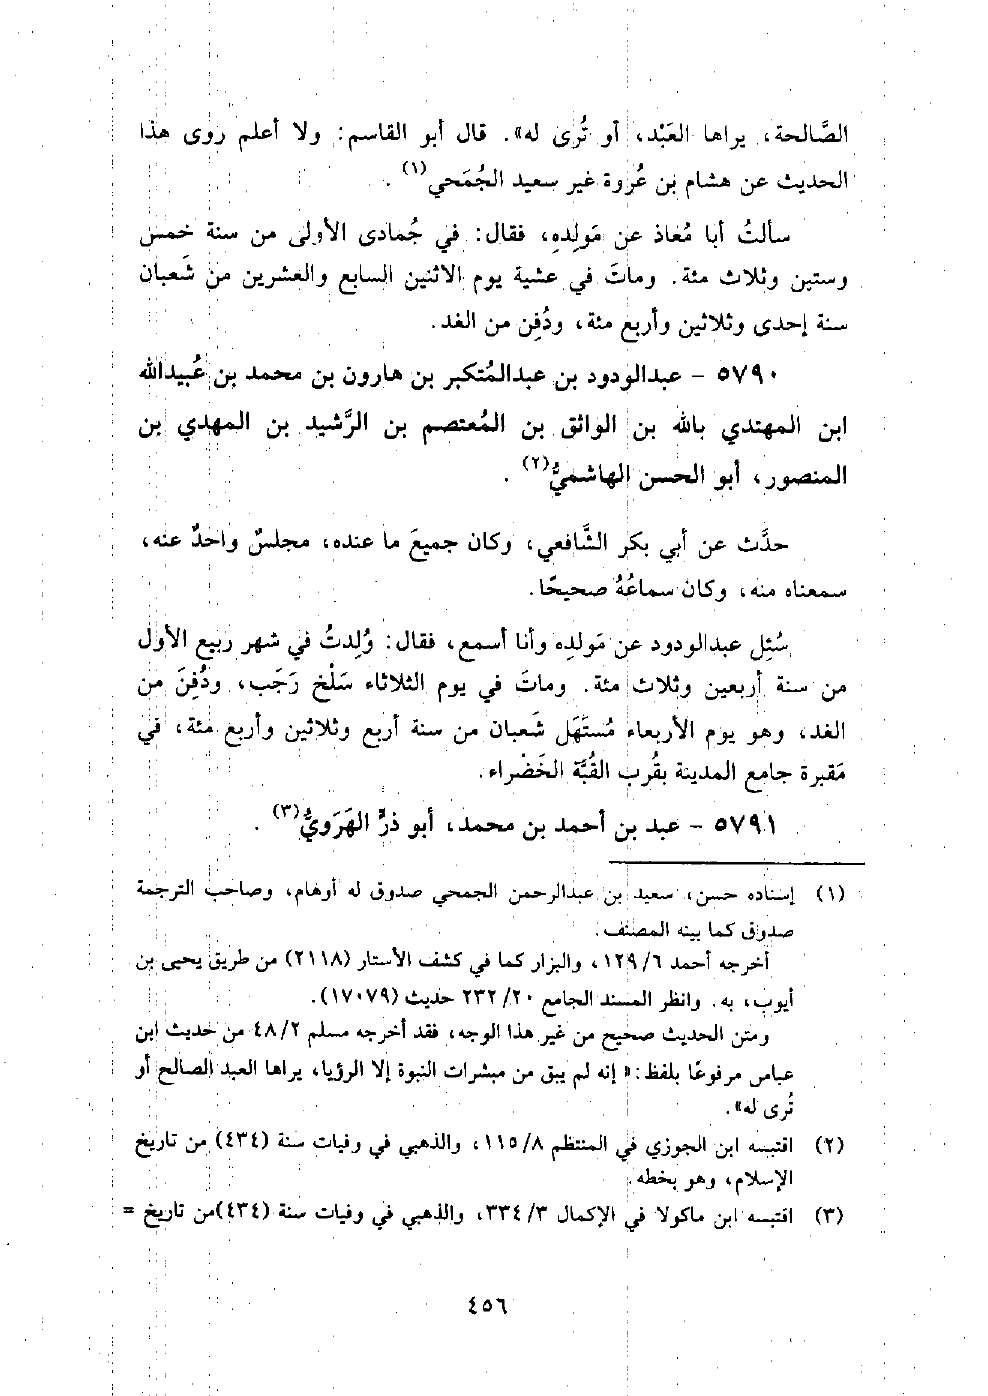 الصَّالحة، يراها العَبْد، أو تُرى له». قال أبو القاسم: ولا أعلم روى هذا
الحديث عن هشام بن عُروة غير سعيد الجُمَحي(١) .
سألتُ أبا مُعاذ عن مَولِدِهِ، فقال: في جُمادى الأولى من سنة خمس
وستين وثلاث مئة. وماتَ في عشية يوم الاثنين السابع والعشرين من شَعبان
سنة إحدى وثلاثين وأربع مئة، ودُفِن من الغد.
٥٧٩٠ - عبدالودود بن عبدالمُتكبر بن هارون بن محمد بن عُبيدالله
ابن المهتدي بالله بن الواثق بن المُعتصم بن الرَّشيد بن المهدي بن
المنصور، أبو الحسن الهاشميُّ(٢) .
حدَّث عن أبي بكر الشَّافعي، وكان جميعَ ما عنده، مجلسٌ واحدٌ عنه،
سمعناه منه، وكان سماعُهُ صحيحًا.
سُئِل عبدالودود عن مَولدِه وأنا أسمع، فقال: وُلِدتُ في شهر ربيع الأول
من سنة أربعين وثلاث مئة. وماتَ في يوم الثلاثاء سَلْخ رَجَب، ودُفِنَ من
الغد، وهو يوم الأربعاء مُستَهَل شَعبان من سنة أربع وثلاثين وأربع مئة، في
مَقبرة جامع المدينة بقُرب القُبَّة الخَضْراء.
٥٧٩١ - عبد بن أحمد بن محمد، أبو ذرٍّ الهَرَويُّ(٣) .
(١) إسناده حسن، سعيد بن عبدالرحمن الجمحي صدوق له أوهام، وصاحب الترجمة
صدوق كما بينه المصنف.
أخرجه أحمد ٦/ ١٢٩، والبزار كما في كشف الأستار (٢١١٨) من طريق يحيى بن
أيوب، به. وانظر المسند الجامع ٢٠/ ٢٣٢ حديث (١٧٠٧٩).
ومتن الحديث صحيح من غير هذا الوجه، فقد أخرجه مسلم ٢/ ٤٨ من حديث ابن
عباس مرفوعًا بلفظ: «إنه لم يبق من مبشرات النبوة إلا الرؤيا، يراها العبد الصالح أو
تُرى له».
(٢) اقتبسه ابن الجوزي في المنتظم ٨/ ١١٥، والذهبي في وفيات سنة (٤٣٤) من تاريخ
الإسلام، وهو بخطه.
(٣) اقتبسه ابن ماكولا في الإكمال ٣/ ٣٣٤، والذهبي في وفيات سنة (٤٣٤)من تاريخ =
٤٥٦